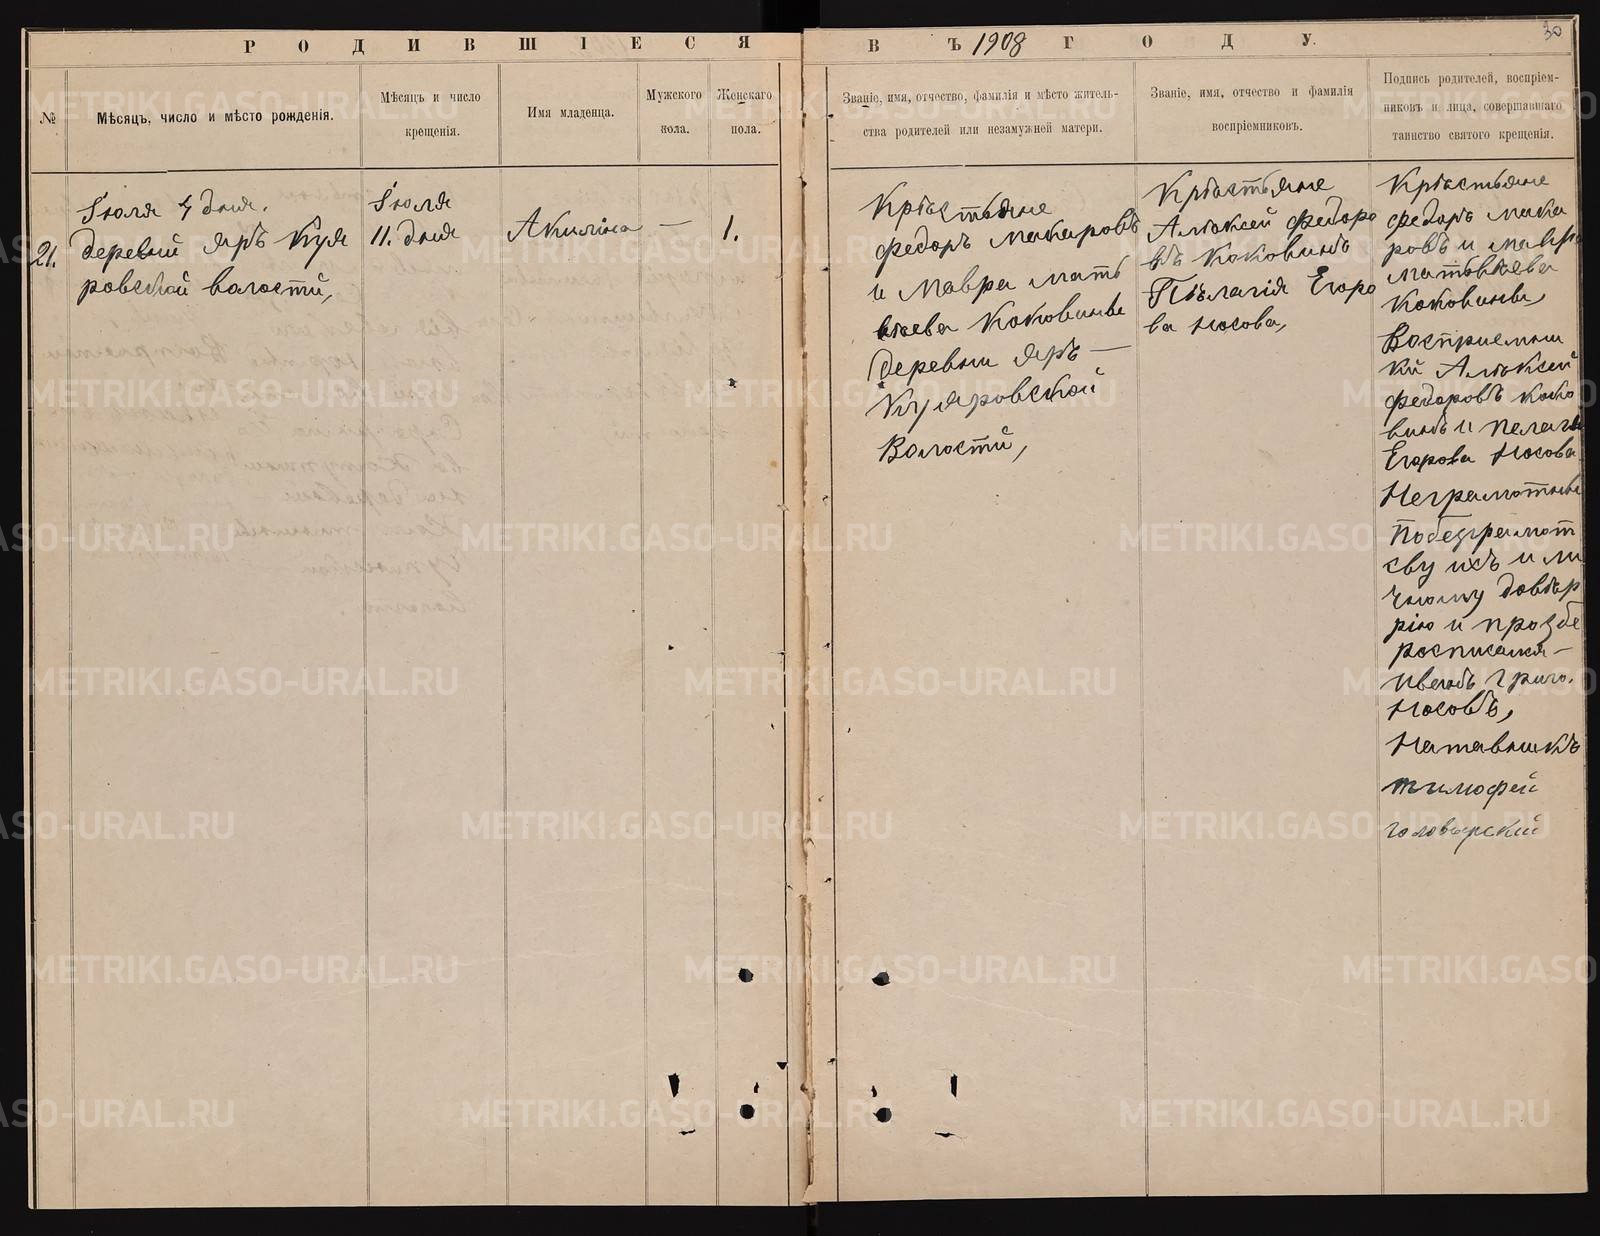 РОДИВШІЕСЯ
ВЪ 1908 ГОДУ.
30
№
Мѣсяцъ, число и мѣсто рожденія.
Мѣсяцъ и число
крещенія.
Имя младенца.
Мужского
пола.
Женскаго
пола.
Званіе, имя, отчество, фамилія и мѣсто житель-
ства родителей или незамужней матери.
Званіе, имя, отчество и фамилія
воспріемниковъ.
Подпись родителей, воспріем-
никовъ и лица, совершавшаго
таинство святого крещенія.
21.
Іюля 4 дня.
деревни Яръ Куя
ровской волости,
Іюля
11. дня
Акилина
—
1.
Крѣстьяне
Федоръ Макаровъ
и Мавра Матв
ѣева Коковины
деревни Яръ —
Куяровской
Волости,
Крѣстьяне
Алѣксей Федоро
въ Коковинъ
Пѣлагія Егоро
ва Носова,
Крѣстьяне
Федоръ Мака
ровъ и Мавра
Матвѣева
Коковины
Восприемни
ки Алѣксей
Федоровъ Коко
винъ и Пелагия
Егорова Носова
Неграмотны
Побезграмот
сву ихъ и ли
чному довѣр
рію и прозбе
росписался —
Иванъ Григо.
Носовъ,
Наставникъ
Тимофей
METRIKI.GASO-URAL.RU